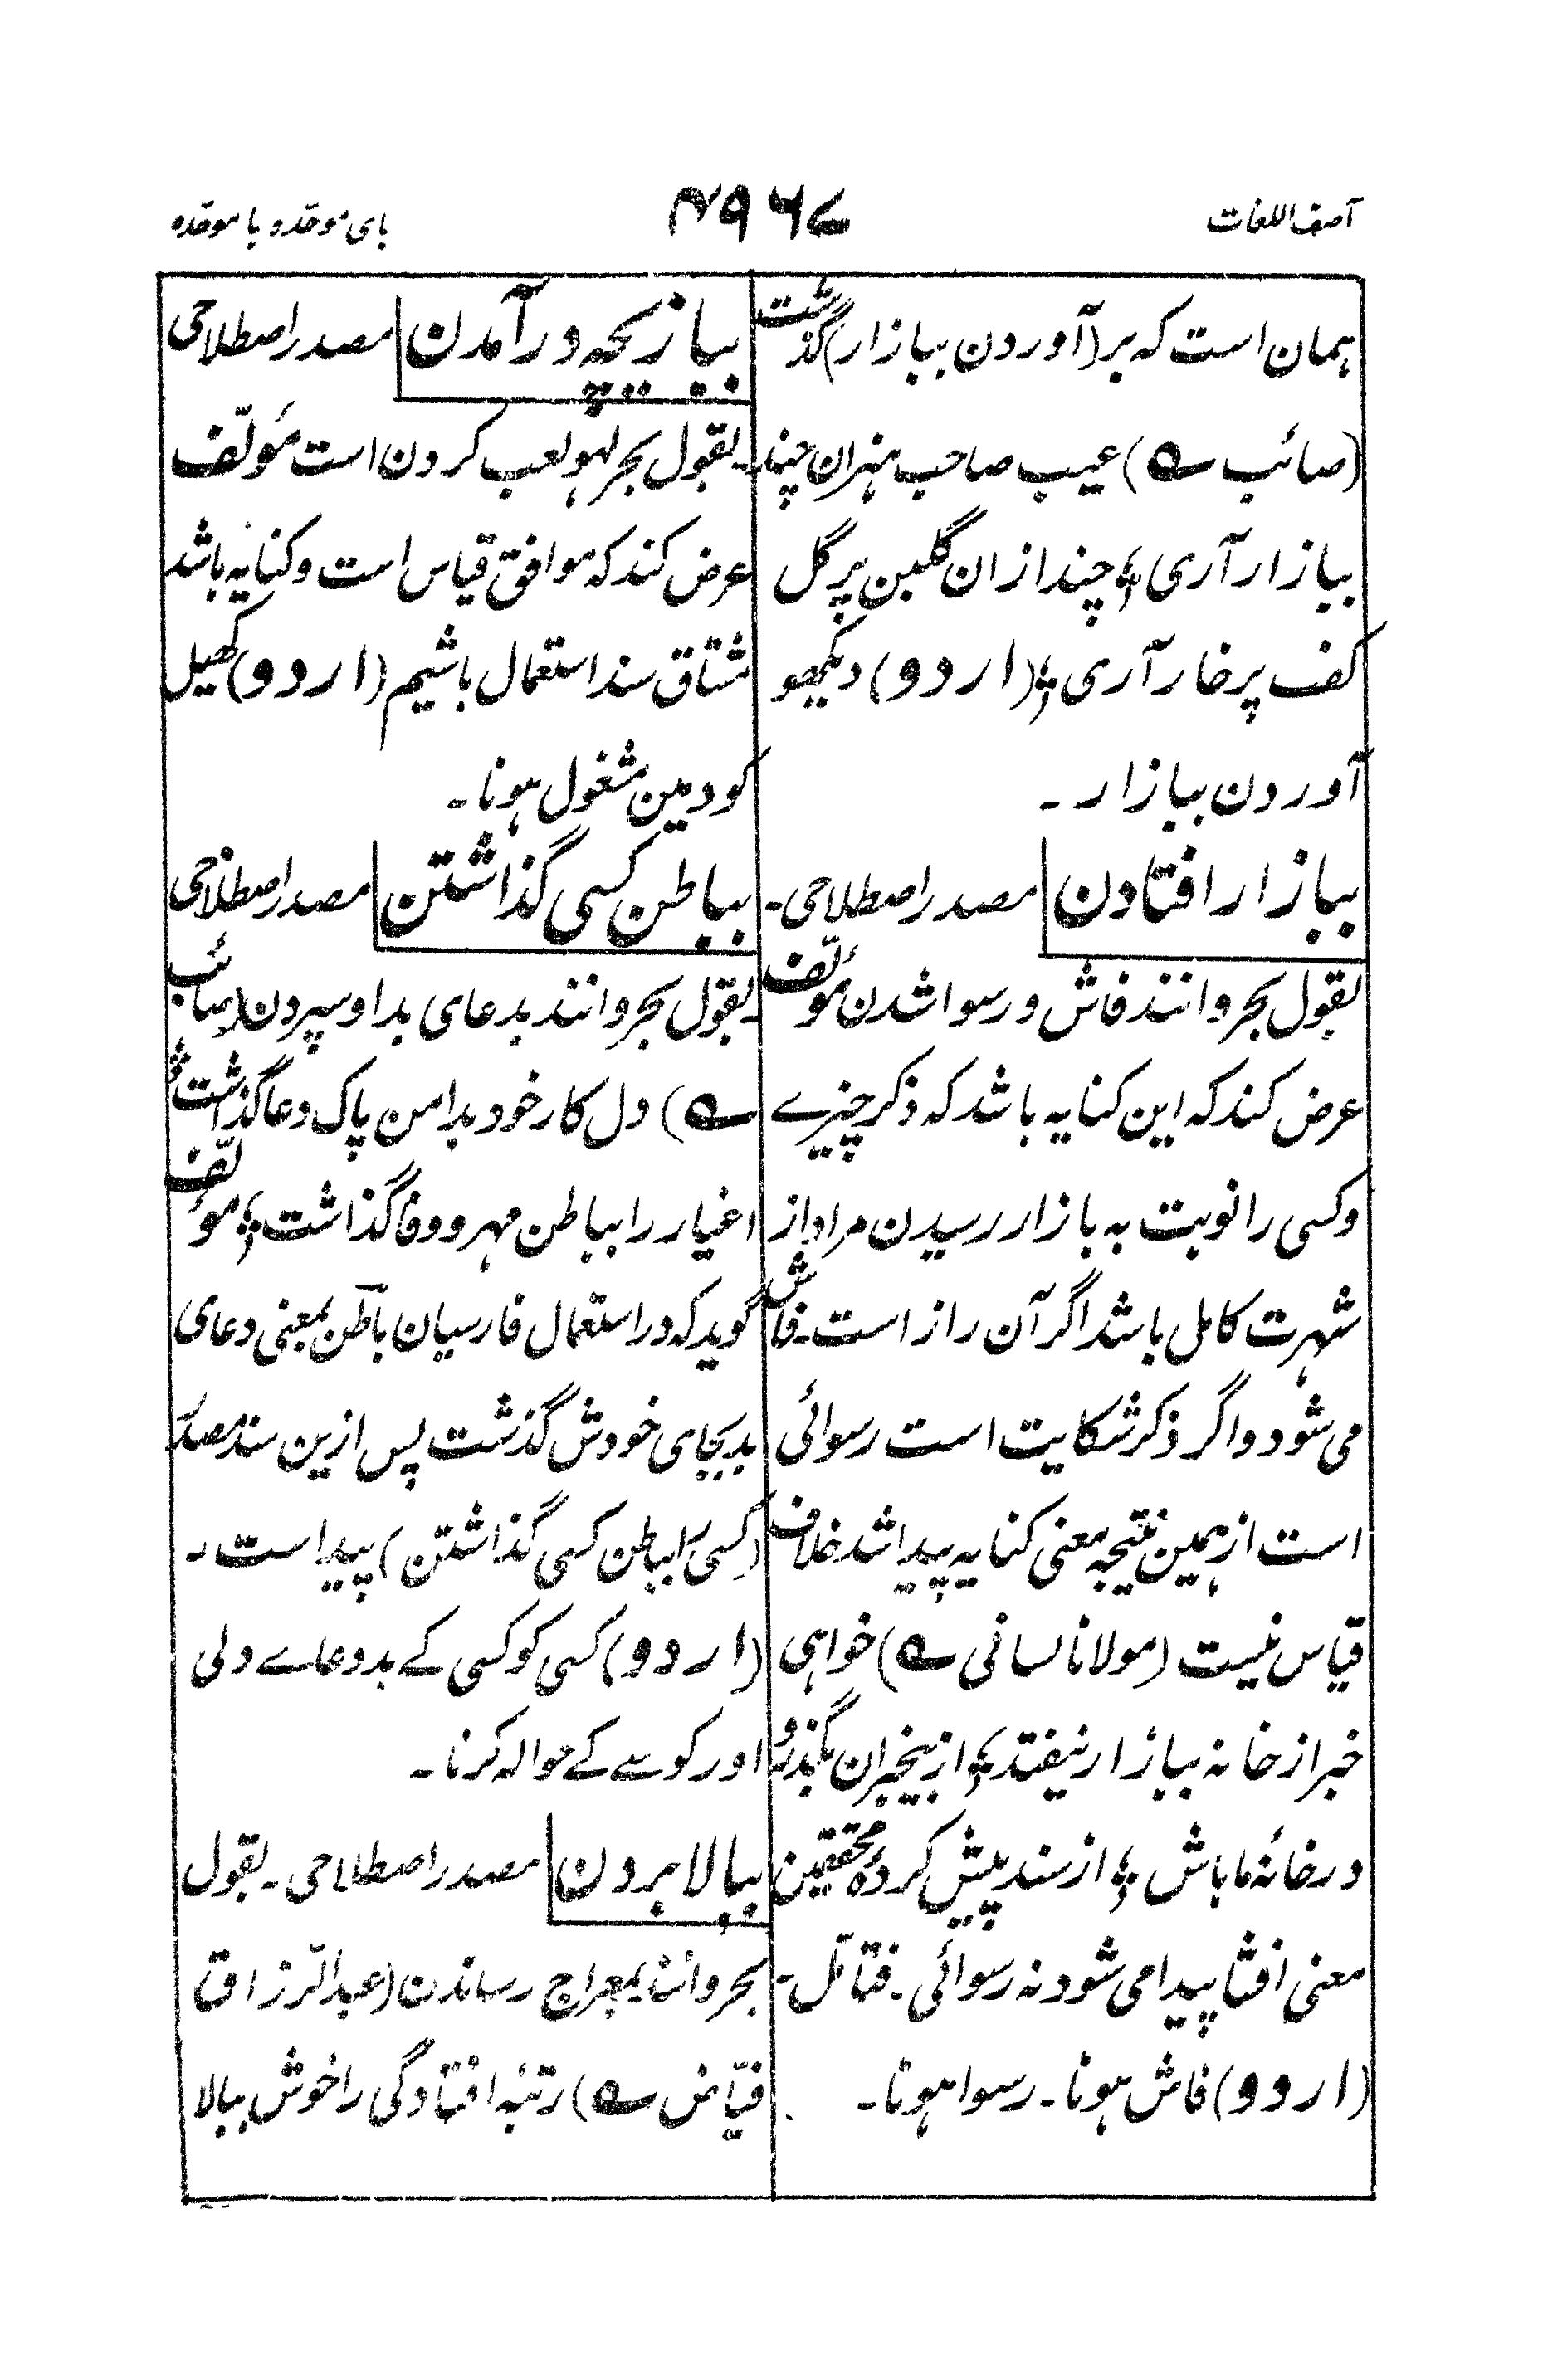 آصف اللغات
۴۹۶۷
بای موحّده با موحّده
ہمان است کہ بر (آوردن ببازار) گذشت
(صائب ؎) عیب صاحب ہنران چند
ببازار آری ؛ چند ازان گلبن پر گل
کف پر خار آری ؛ (اردو) دیکھو
آوردن ببازار ۔
ببازار افتادن مصدر اصطلاحی۔
بقول بحر و انند فاش و رسوا شدن مؤلّف
عرض کند کہ این کنایہ باشد کہ ذکر چیزے
و کسی را نوبت بہ بازار رسیدن مراد از
شہرت کامل باشد اگر آن راز است ۔ فاش
می شود و اگر ذکر شکایت است رسوائی
است از ہمین نتیجہ معنی کنایہ پیدا شد خلاف
قیاس نیست (مولانا لسانی ؎) خواہی
خبر از خانہ ببازار نیفتد ؛ از بیخبران بگذر و
در خانۂ ما باش ؛ از سند پیش کردۂ محققین
معنی افشا پیدا می شود نہ رسوائی ۔ فتأمّل ۔
(اردو) فاش ہونا ۔ رسوا ہونا ۔
ببازیچہ در آمدن مصدر اصطلاحی
۔ بقول بحر لہو لعب کردن است مؤلّف
عرض کند کہ موافق قیاس است و کنایہ باشد
مشتاق سند استعمال باشیم (اردو) کھیل
کود مین مشغول ہونا ۔
بباطن کسی گذاشتن مصدر اصطلاحی
۔ بقول بحر و انند بدعای بد او سپردن (صائب
؎) دل کار خود بدامن پاک دعا گذاشت ؛
اغیار را بباطن مہر و وفا گذاشت ؛ مؤلّف
گوید کہ در استعمال فارسیان باطن بمعنی دعای
بد بجای خودش گذشت پس ازین سند مصدر
(کسی را بباطن کسی گذاشتن) پیدا است ۔
(اردو) کسی کو کسی کے بد دعاے دلی
اور کوسے کے حوالہ کرنا ۔
ببالا بردن مصدر اصطلاحی ۔ بقول
بحر و انند بمعراج رساندن (عبدالرّزاق
فیّاض ؎) رتبۂ افتادگی را خوش ببالا